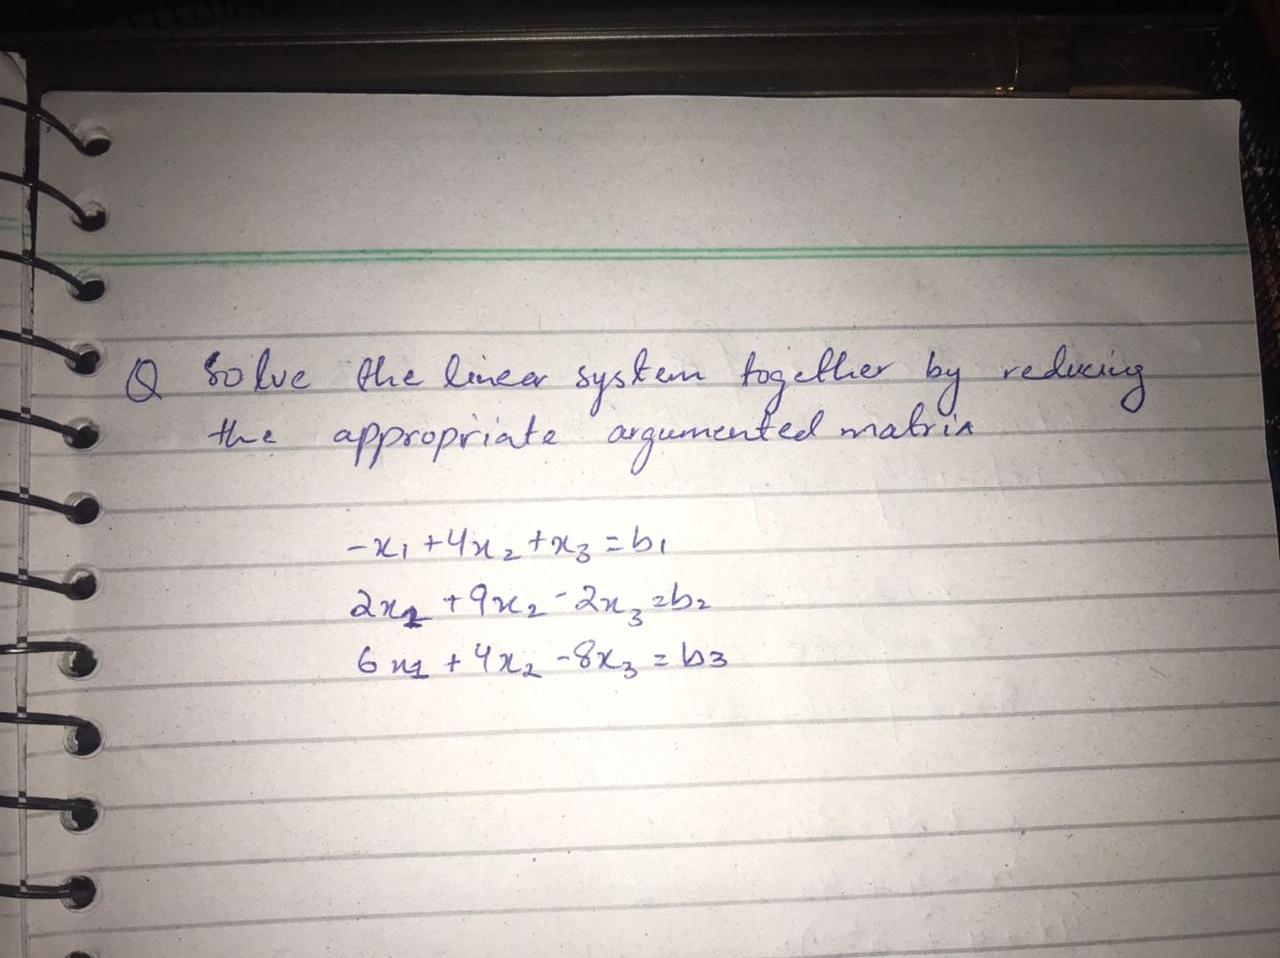 Q Solve the linear system together by reducing
the appropriate argumented matrix
-x₁ + 4x₂ + x₃ = b₁
2x₁ + 9x₂ - 2x₃ = b₂
6x₁ + 4x₂ - 8x₃ = b₃